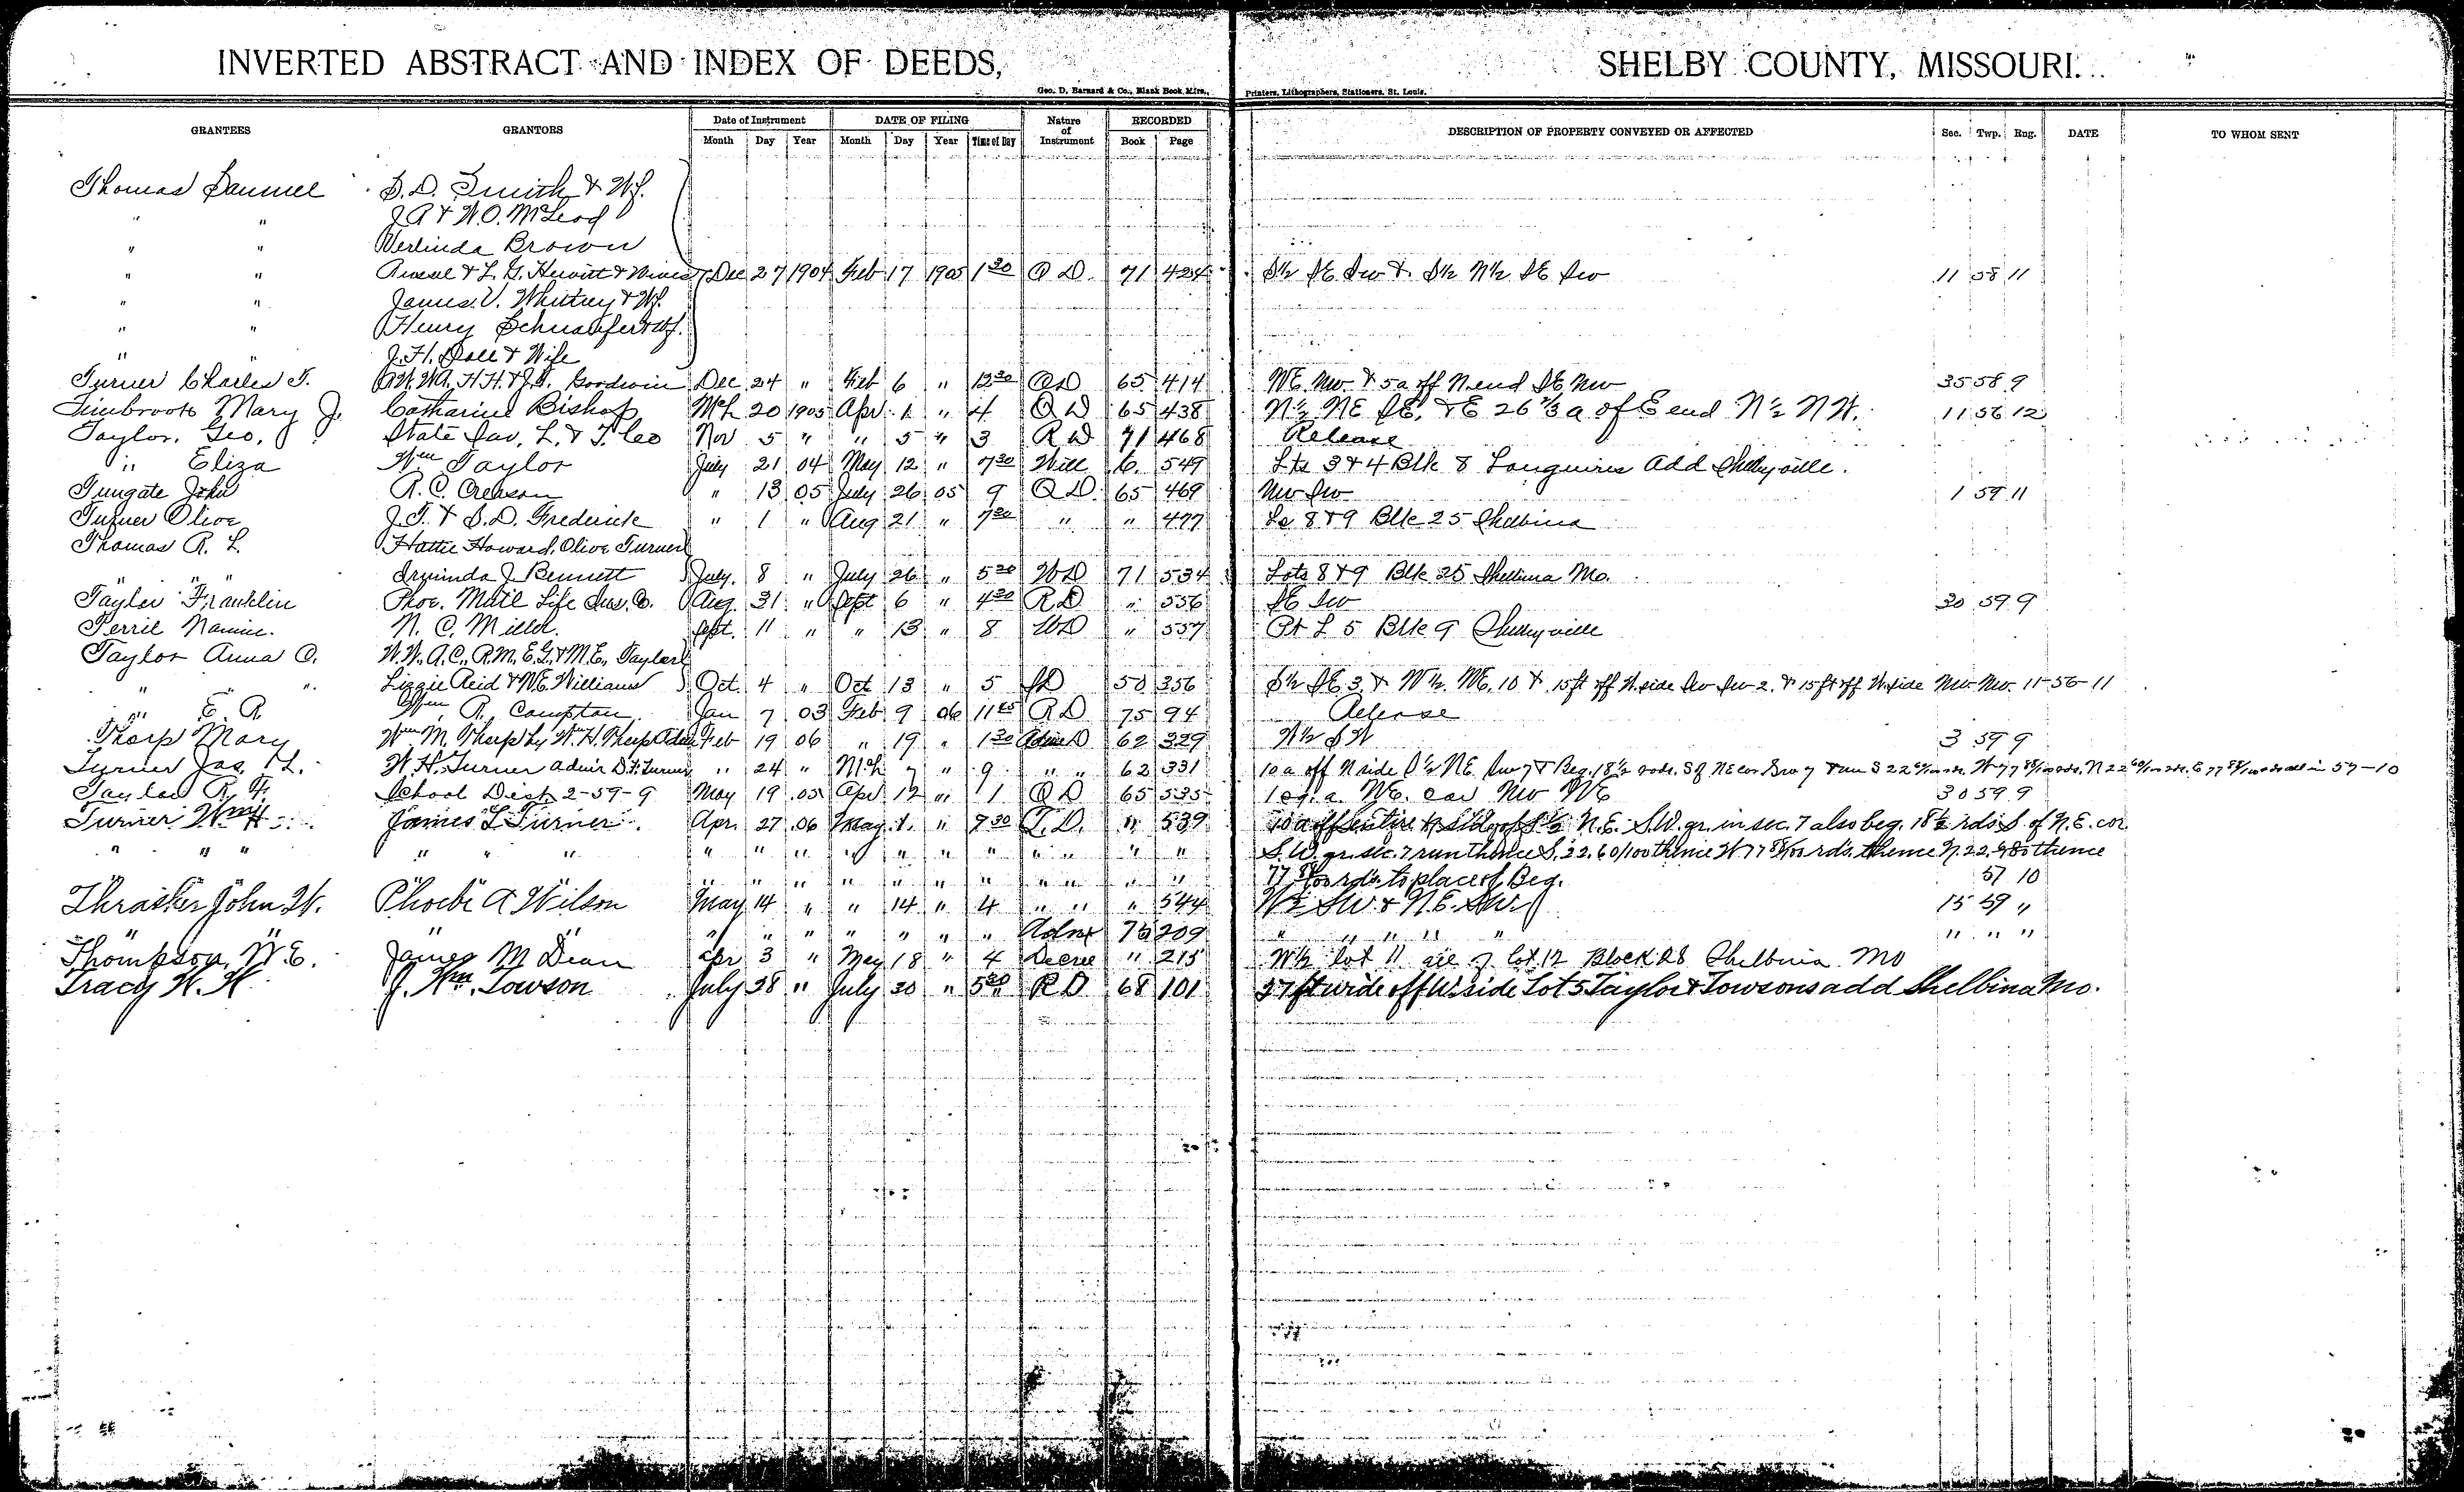 INVERTED ABSTRACT AND INDEX OF DEEDS, SHELBY COUNTY, MISSOURI.
Geo. D. Barnard & Co., Blank Book Mfrs., Printers, Lithographers, Stationers, St. Louis.
GRANTEES GRANTORS Date of Instrument DATE OF FILING Nature of Instrument RECORDED DESCRIPTION OF PROPERTY CONVEYED OR AFFECTED Sec. Twp. Rng. DATE TO WHOM SENT
Month Day Year Month Day Year Time of Day Book Page
Thomas Samuel S. D. Smith & Wf.
" " J A & W. O. McLeod
" " Verlinda Brown
" " & L. G. Hewitt & Wives Dec 27 1904 Feb 17 1905 1 30 Q D. 71 424 S½ SE SW & S½ N½ SE SW 11 58 11
" " James V. Whitney & Wf.
" " Henry Schnaufer & Wf.
" " J. H. Doll & Wife
Turner Charles T. Goodwin Dec 24 " Feb 6 " 12 30 Q D 65 414 NE NW & 5 a off N end SE NW 35 58 9
Timbrook Mary J. Catharine Bishop Mch 20 1905 Apr 1 " 4 Q D 65 438 N½ NE SE, & E 26 ⅔ a of E end N½ N W. 11 56 12
Taylor, Geo. State Sav. L. & T. Co Nov 5 " " 5 " 3 R D 71 468 Release
" Eliza Wm Taylor July 21 04 May 12 " 7 30 Will 6 549 Lts 3 & 4 Blk 8 Add Shelbyville.
Tungate John R. C. Creason " 13 05 July 26 05 9 Q D. 65 469 NW SW 1 59 11
Turner Olive J. T. & S. D. Frederick " 1 " Aug 21 " 7 30 " " 477 Lo 8 & 9 Blk 25 Shelbina
Thomas R. L. Hattie Howard, Olive Turner
" " J. Bennett July 8 " July 26 " 5 20 W D 71 534 Lots 8 & 9 Blk 25 Shelbina Mo.
Taylor Franklin Phoe. Mutl Life Ins. Co. Aug. 31 " Sept 6 " 4 30 R D " 556 SE SW 30 59 9
Terril Nannie N. C. Miller. Sept. 11 " " 13 " 8 W D " 557 Pt L 5 Blk 9 Shelbyville
Taylor Anna C. W. W., A. C., R. M., E. G., & M. E., Taylor
" " " Lizzie Reid & W. E. Williams Oct. 4 " Oct 13 " 5 50 356 S½ SE 3 & N½ NE, 10 & 15 ft off N. side SW SW 2, & 15 ft off N side NW NW. 11-56-11
" E. R. Wm R. Compton Jan 7 03 Feb 9 06 11 45 R D 75 94 Release
Tharp Mary Wm M. Tharp by W. H. Tharp Adm Feb 19 06 " 19 " 1 30 Admr D 62 329 W½ S W 3 59 9
Turner Jas. L. W. H. Turner Admr D. F. Turner " 24 " Mch 7 " 9 " " 62 331 10 a off N side S½ NE SW 7 & Beg. 18½ rods. S of NE cor SW 7 run S 22 60/100 rds. W 77 88/100 rods. N 22 60/100 rds. E 77 88/100 rods all in 57-10
Taylor R. F. School Dist. 2-59-9 May 19 .05 Apr 12 06 1 Q D 65 535 1 sq. a. NE. cor NW NE 30 59 9
Turner Wm H James L Turner Apr. 27 .06 May 1. " 7 30 Q. D. " 539 10 a off entire N side of S½ N. E. S.W. qr. in sec. 7 also beg. 18½ rds S. of N. E. cor.
" " " " " " " " " " " " " " " " " S. W. qr. sec. 7 run thence S. 22. 60/100 thence W 77 88/100 rds. thence N. 22. 60/100 thence
" " " " " " " " " " " " " " " " 77 88/100 rds. to place of Beg. 57 10
Thrasher John W. Phoebe A Wilson May 14 " " 14 " 4 " " " 544 W½ SW. & N. E. SW. 15 59 "
" " " " " " " " " Admr 75 209 " " " " " " " "
Thompson, W. E. James M Dean Apr 3 " May 18 " 4 Decree " 215 W½ lot 11 all of lot 12 Block 28 Shelbina Mo
Tracy W. H J. Wm. Towson July 28 " July 30 " 5 20 R D 68 101 37 ft wide off W. side Lot 5 Taylor & Towsons add Shelbina Mo.